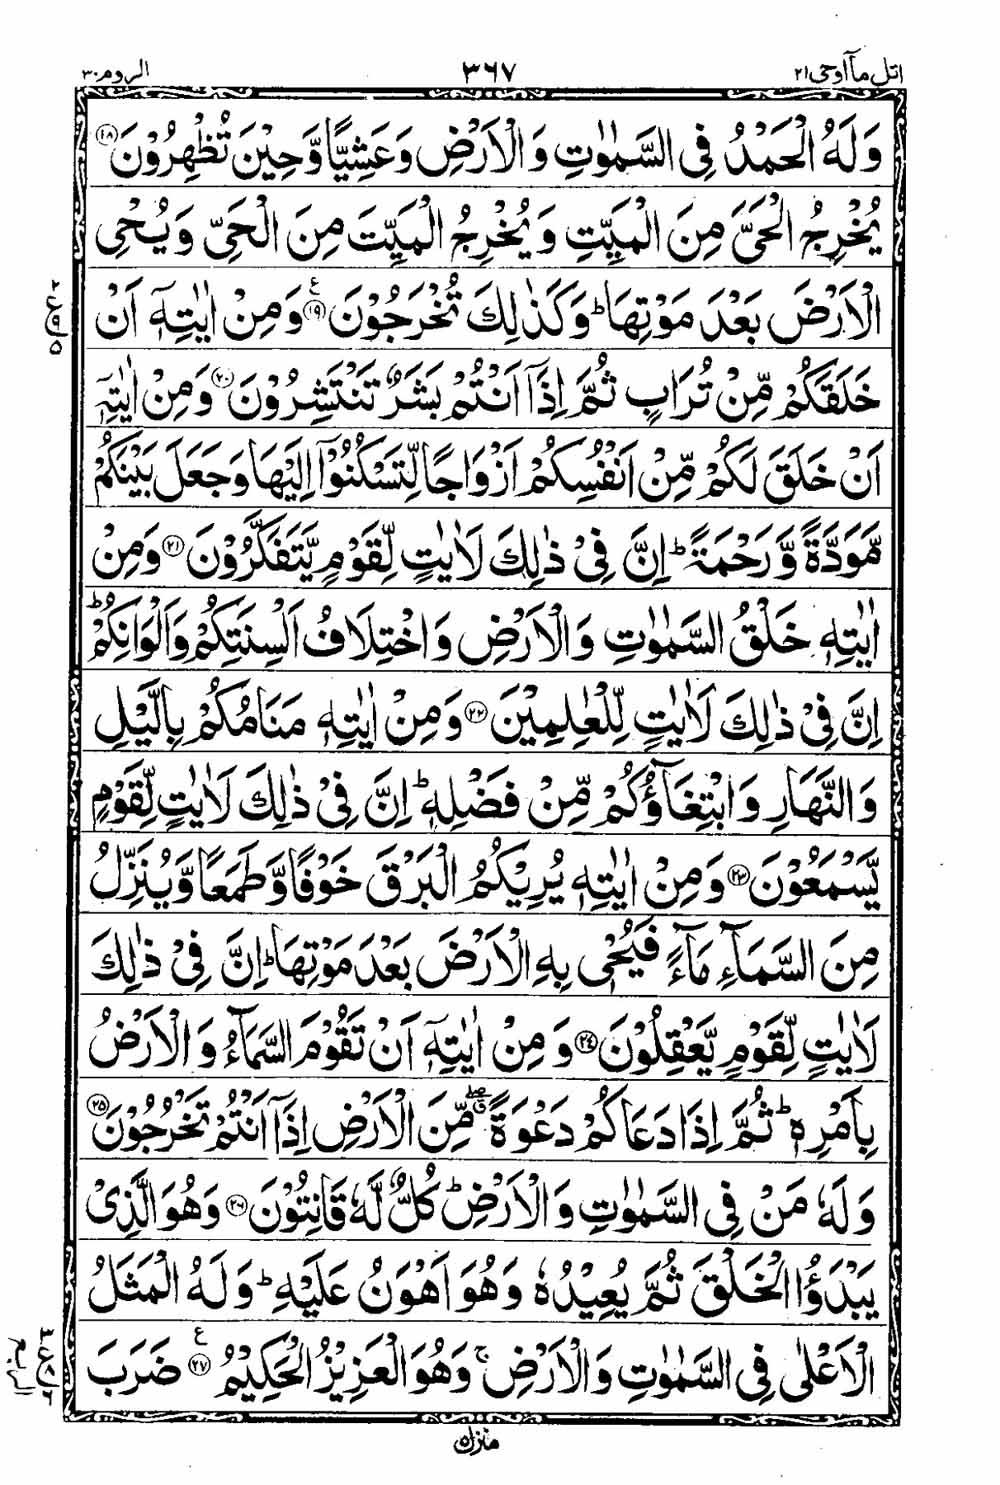 اتل مآ اوحی ۲۱ ۳۶۷ الروم ۳۰
وَلَهُ الْحَمْدُ فِی السَّمٰوٰتِ وَ الْاَرْضِ وَ عَشِیًّا وَّ حِیْنَ تُظْهِرُوْنَ ⁠﴿۱۸﴾
یُخْرِجُ الْحَیَّ مِنَ الْمَیِّتِ وَ یُخْرِجُ الْمَیِّتَ مِنَ الْحَیِّ وَ یُحْیِ
الْاَرْضَ بَعْدَ مَوْتِهَا ؕ وَ كَذٰلِكَ تُخْرَجُوْنَ ﴿۱۹﴾ ع وَ مِنْ اٰیٰتِهٖۤ اَنْ
خَلَقَكُمْ مِّنْ تُرَابٍ ثُمَّ اِذَاۤ اَنْتُمْ بَشَرٌ تَنْتَشِرُوْنَ ﴿۲۰﴾ وَ مِنْ اٰیٰتِهٖۤ
اَنْ خَلَقَ لَكُمْ مِّنْ اَنْفُسِكُمْ اَزْوَاجًا لِّتَسْكُنُوْۤا اِلَیْهَا وَ جَعَلَ بَیْنَكُمْ
مَّوَدَّةً وَّ رَحْمَةً ؕ اِنَّ فِیْ ذٰلِكَ لَاٰیٰتٍ لِّقَوْمٍ یَّتَفَكَّرُوْنَ ﴿۲۱﴾ وَ مِنْ
اٰیٰتِهٖ خَلْقُ السَّمٰوٰتِ وَ الْاَرْضِ وَ اخْتِلَافُ اَلْسِنَتِكُمْ وَ اَلْوَانِكُمْ ؕ
اِنَّ فِیْ ذٰلِكَ لَاٰیٰتٍ لِّلْعٰلِمِیْنَ ﴿۲۲﴾ وَ مِنْ اٰیٰتِهٖ مَنَامُكُمْ بِالَّیْلِ
وَ النَّهَارِ وَ ابْتِغَآؤُكُمْ مِّنْ فَضْلِهٖ ؕ اِنَّ فِیْ ذٰلِكَ لَاٰیٰتٍ لِّقَوْمٍ
یَّسْمَعُوْنَ ﴿۲۳﴾ وَ مِنْ اٰیٰتِهٖ یُرِیْكُمُ الْبَرْقَ خَوْفًا وَّ طَمَعًا وَّ یُنَزِّلُ
مِنَ السَّمَآءِ مَآءً فَیُحْیٖ بِهِ الْاَرْضَ بَعْدَ مَوْتِهَا ؕ اِنَّ فِیْ ذٰلِكَ
لَاٰیٰتٍ لِّقَوْمٍ یَّعْقِلُوْنَ ﴿۲۴﴾ وَ مِنْ اٰیٰتِهٖۤ اَنْ تَقُوْمَ السَّمَآءُ وَ الْاَرْضُ
بِاَمْرِهٖ ؕ ثُمَّ اِذَا دَعَاكُمْ دَعْوَةً ۖق مِّنَ الْاَرْضِ اِذَاۤ اَنْتُمْ تَخْرُجُوْنَ ﴿۲۵﴾
وَ لَهٗ مَنْ فِی السَّمٰوٰتِ وَ الْاَرْضِ ؕ كُلٌّ لَّهٗ قٰنِتُوْنَ ﴿۲۶﴾ وَ هُوَ الَّذِیْ
یَبْدَؤُا الْخَلْقَ ثُمَّ یُعِیْدُهٗ وَ هُوَ اَهْوَنُ عَلَیْهِ ؕ وَ لَهُ الْمَثَلُ
الْاَعْلٰی فِی السَّمٰوٰتِ وَ الْاَرْضِ ۚ وَ هُوَ الْعَزِیْزُ الْحَكِیْمُ ﴿۲۷﴾ ع ضَرَبَ
منزل ۵